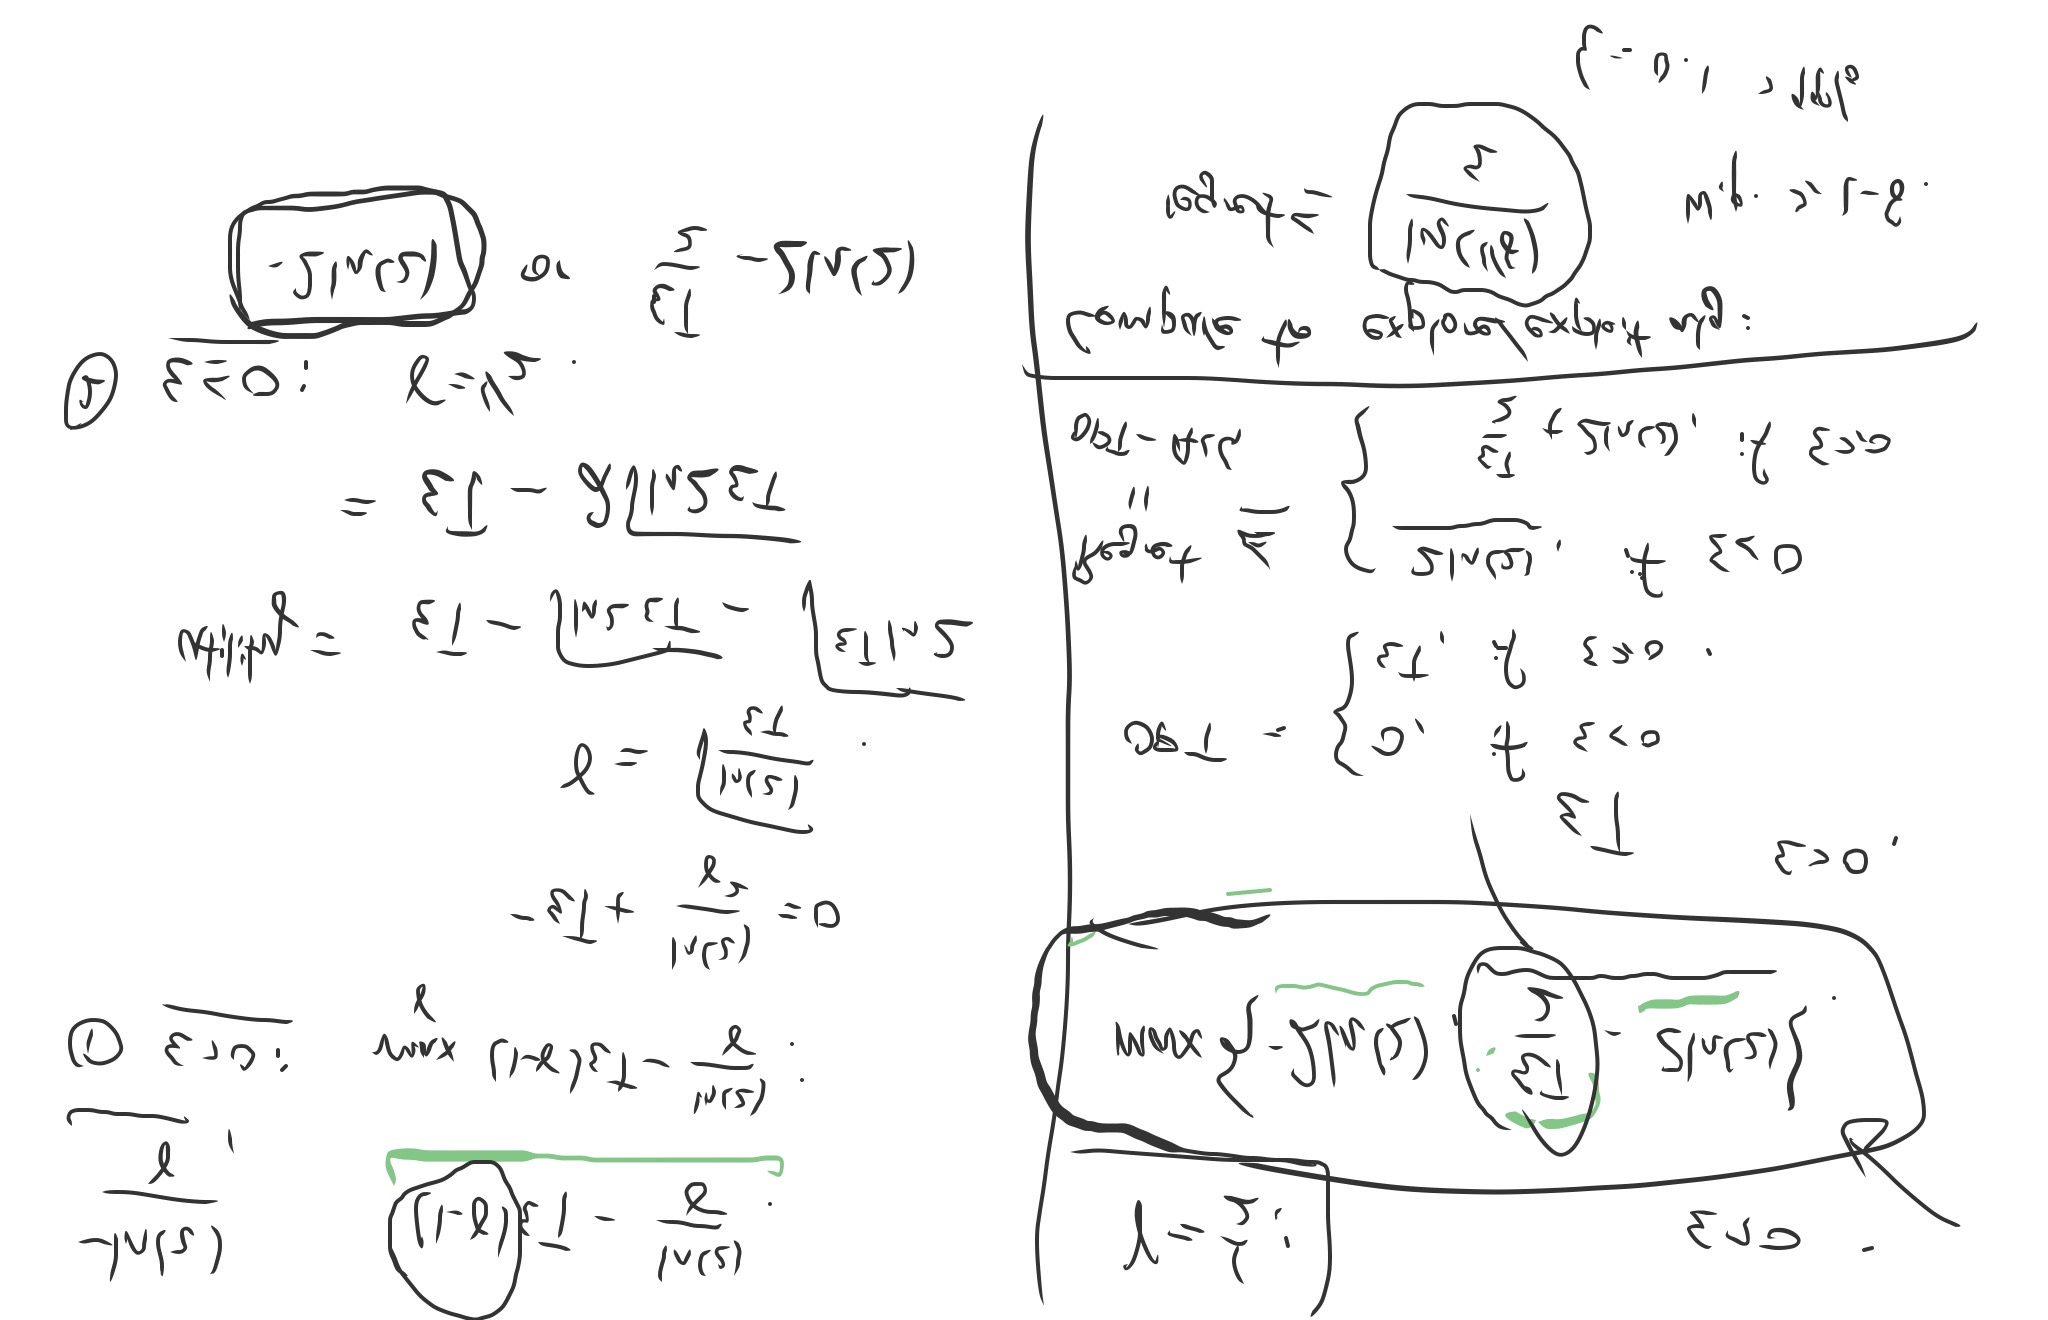 -ln(2)/γ , (1-γ)εT - ln(2)/γ .
① ε>0: max_γ (1-γ)εT - ln(2)/γ .
-εT + ln(2)/γ² = 0
γ = √(ln(2)/εT) .
utility = εT - √(ln2 εT) - √(εT ln2)
= εT - 2√(ln2 εT)
② ε≤0: γ=1/2 .
-2ln(2) or εT/2 - 2ln(2)
γ = 1/2 :
ε>0
max{-2ln(2), εT/2 - 2ln(2)}.
ε>0.
εT
OPT = { 0, if ε<0
εT, if ε≥0 .
Regret ≤ { 2ln(2), if ε<0
εT/2 + 2ln(2), if ε≥0
=
OPT-ALG
Compare to explore/exploit alg:
regret ≤ ln(1/δ)/ε w.p. ≥ 1-δ.
ε=0.1 , 99%